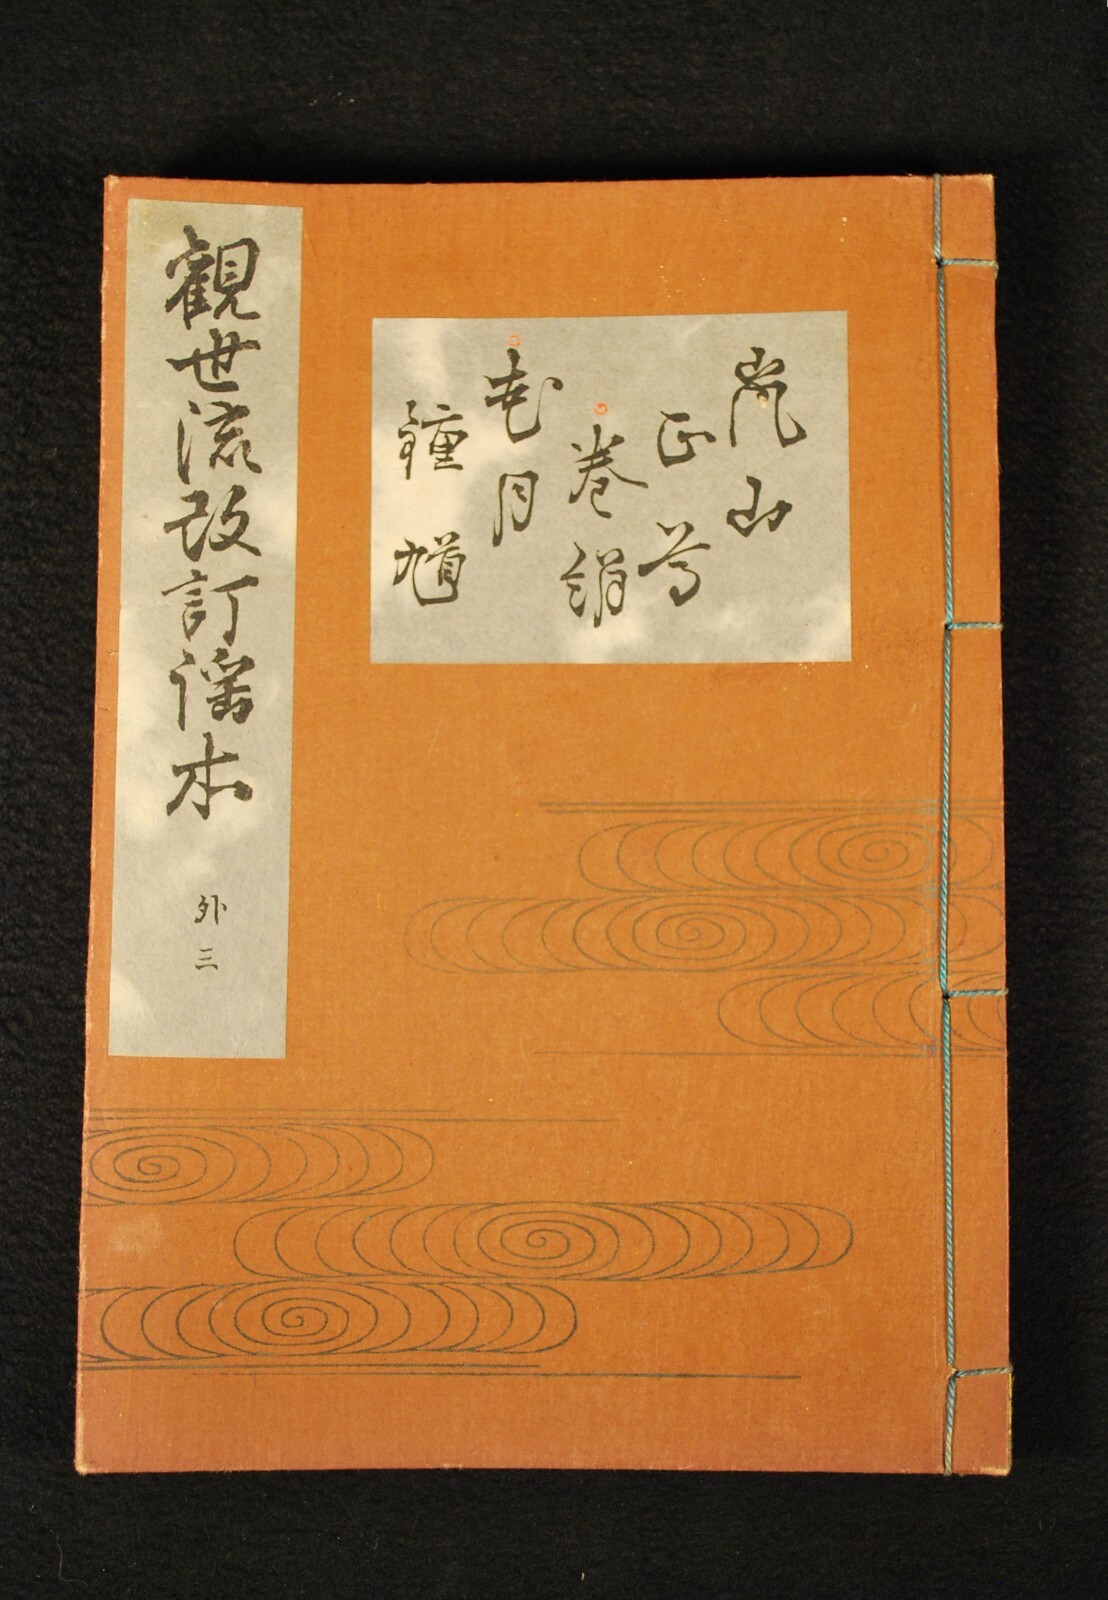 觀世流改訂謡本
外三
嵐山
正尊
巻絹
花月
鍾馗